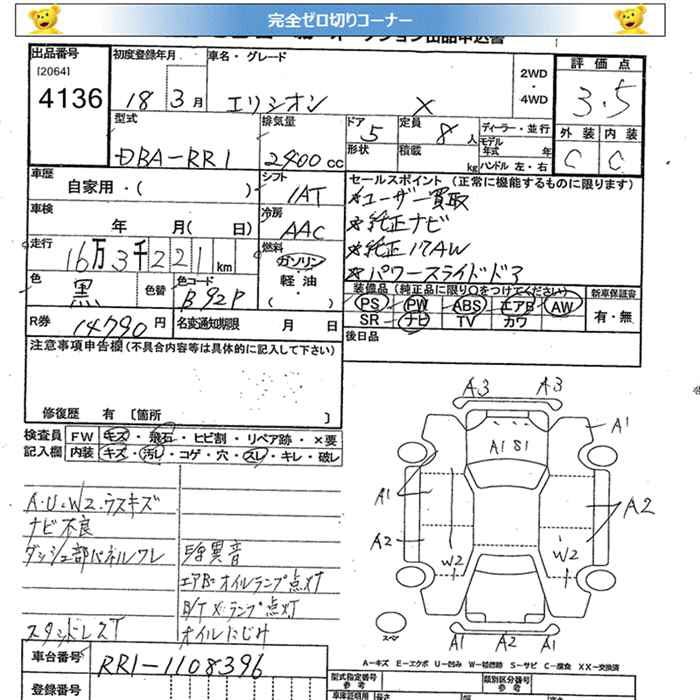 完全ゼロ切りコーナー
オークション出品申込書
出品番号
[2064]
4136
初度登録年月
18 3月
車名・グレード
エリシオン X
2WD
・
4WD
評価点
3.5
外装 内装
C C
型式
DBA-RR1
排気量
2400cc
ドア
5
定員
8人
形状
積載
kg
ディーラー・並行
モデル年式 年
ハンドル 左・右
車歴
自家用・( )
シフト
IAT
車検
年 月( 日)
冷房
AAC
走行
16万3千221km
燃料
ガソリン
・
軽油
・
( )
色
黒
色替
色コード
B92P
R券
14790円
名変通知期限 月 日
セールスポイント(正常に機能するものに限ります)
※ユーザー買取
※純正ナビ
※純正17AW
※パワースライドドア
装備品(純正品に限り○をつけてください)
PS PW ABS エアB AW
SR ナビ TV カワ
新車保証書
有・無
後日品
注意事項申告欄(不具合内容等は具体的に記入して下さい)
修復歴 有〔箇所 〕
検査員記入欄
FW キズ・飛石・ヒビ割・リペア跡・×要
内装 キズ・汚れ・コゲ・穴・スレ・キレ・破レ
A・U・W2・ウスキズ
ナビ不良
ダッシュ部パネルワレ
スタッドレスT
異音
エアB・オイルランプ点灯
B/T メ・ランプ点灯
オイルにじみ
A3 A3
A1
A1 S1
A1
A2
A2
W2
W2
スペ
A1 A2 A1
A-キズ E-エクボ U-凹み W-補修跡 S-サビ C-腐食 XX-交換済
車台番号
RR1-1108396
登録番号
型式指定番号
参考
類別区分番号
参考
車庫証明用
長さ